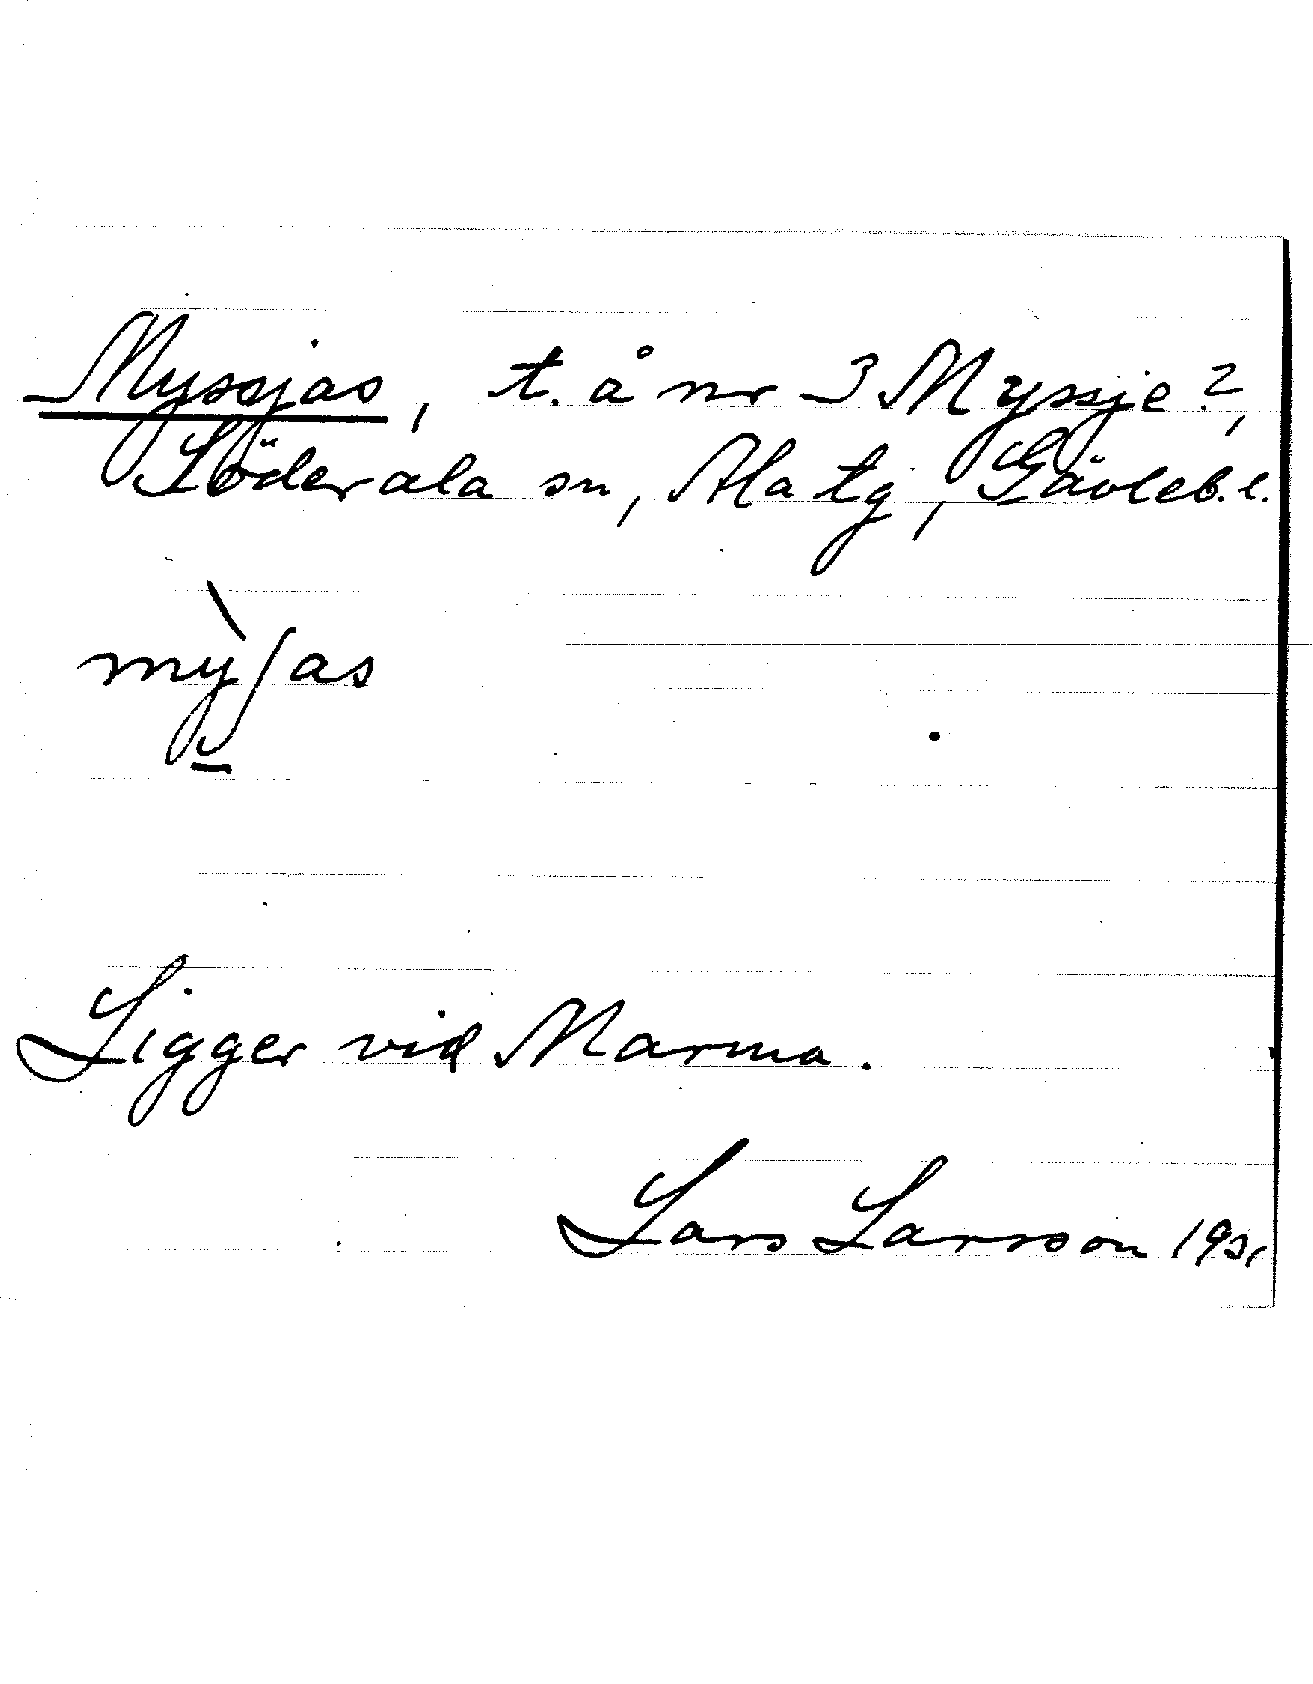 Myssjas, t. å nr 3 Myssje?,
Söderala sn, Ala tg, Gävleb. l.
mỳʃas
Ligger vid Marma.
Lars Larsson